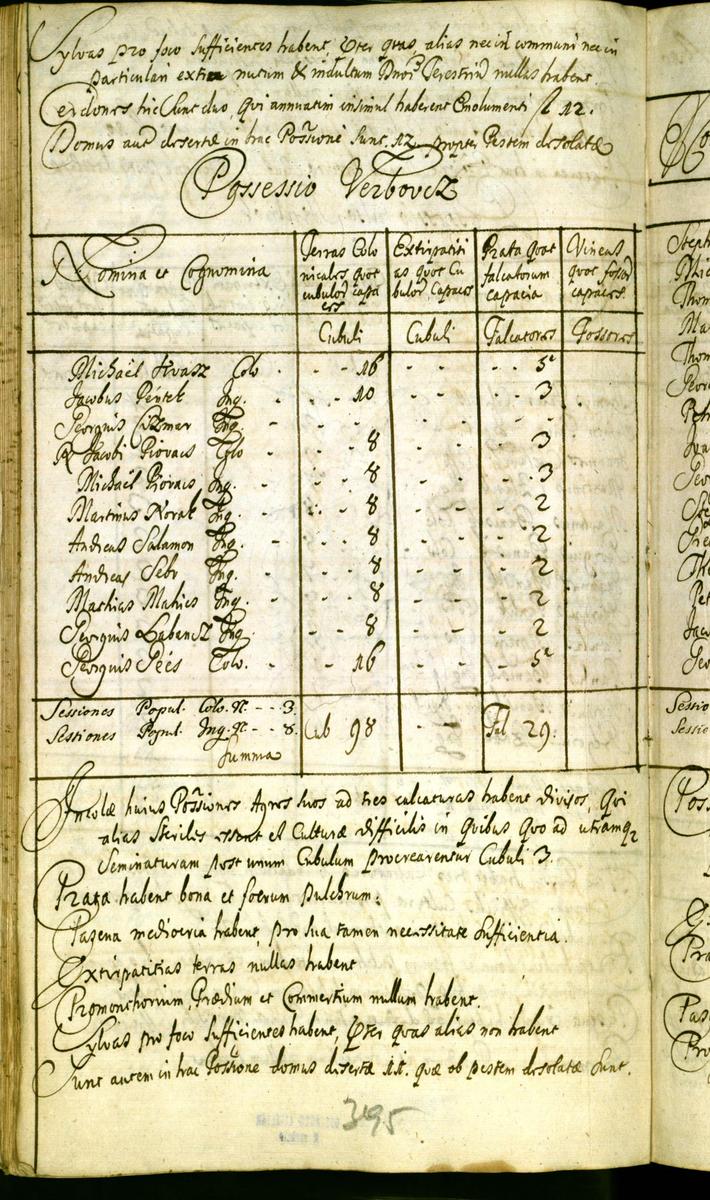 Sylvas pro foco sufficientes habent, Pter quas, alias nec in communi nec in
particulari extra nutum & indultum Dnor Terestriũ nullas habent.
Cerdones hic sunt duo, qui annuatim insimul haberent Emolumenti fl 12.
Domus aut desertæ in hac Possione sunt 12. propter Pestem desolatæ
Possessio Verbovcz
Nomina et Cognomina
Terras Colonicales quot cubulor capaces
Extirpatitias quot Cubulor Capaces
Prata quot falcatorum capacia
Vineas quot fossor capaces
Cubuli Cubuli Falcatores Fossores
Michaël Ivasz Colo - - - 16 - - - - 5
Jacobus Péntek Inq. - - - 10 - - - - 3
Georgius Czimer Inq. - - - - - -
R Jacobi Piovacs Colo - - 8 - - - 3
Michaël Piovacs Inq. - - 8 - - - 3
Martinus Novak Inq. - - 8 - - - 2
Andreas Salamon Inq. - - 8 - - - 2
Andreas Sebr Inq. - - 8 - - - 2
Mathias Mahics Inq. - - 8 - - - 2
Georgius Labancz Inq. - - 8 - - - 2
Georgius Péés Colo. - - 16 - - - 5
Sessiones Popul. Colo. N. - - 3
Sessiones Popul. Inq. N - - 8.
Summa Cub 98 - - Fal 29.
Incolæ huius Possiones Agros suos ad tres calcaturas habent divisos, Qui
alias steriles essent et Culturæ difficilis in quibus quo ad utramq
seminaturam post unum Cubulum procrearentur Cubuli 3.
Prata habent bona et foenum pulchrum.
Pagena mediocria habent, pro sua tamen necessitate sufficientia.
Extirpatitias terras nullas habent
Promonthorium, Prædium et Commertium nullum habent.
Sylvas pro foco sufficientes habent, Pter quas alias non habent
Sunt autem in hac Possione domus desertæ 11. quæ ob pestem desolatæ sunt.
395